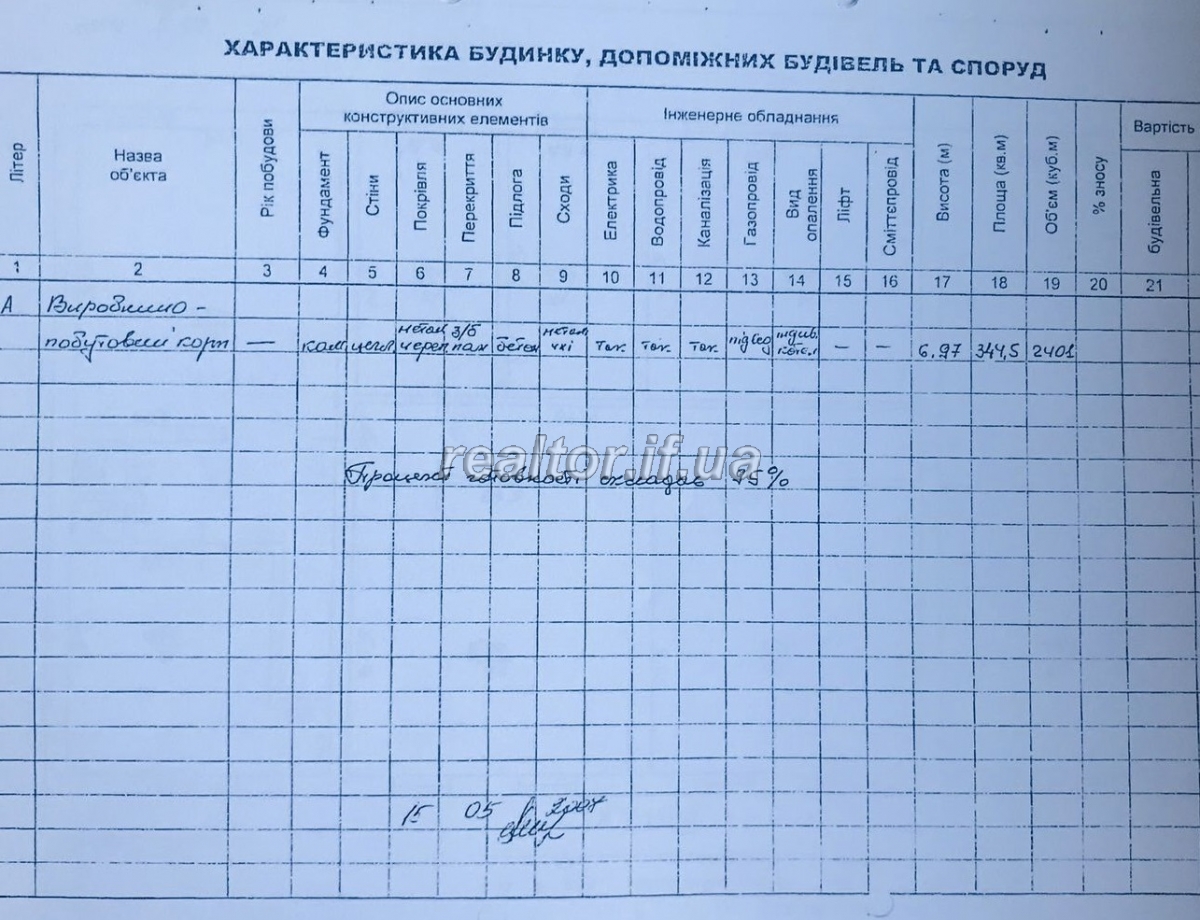 ХАРАКТЕРИСТИКА БУДИНКУ, ДОПОМІЖНИХ БУДІВЕЛЬ ТА СПОРУД
Літер
Назва
об'єкта
Рік побудови
Опис основних
конструктивних елементів
Фундамент
Стіни
Покрівля
Перекриття
Підлога
Сходи
Інженерне обладнання
Електрика
Водопровід
Каналізація
Газопровід
Вид
опалення
Ліфт
Сміттєпровід
Висота (м)
Площа (кв.м)
Об'єм (куб.м)
% зносу
Вартість
будівельна
1 2 3 4 5 6 7 8 9 10 11 12 13 14 15 16 17 18 19 20 21
А Виробничо -
метал з/б метал
побутовий корп — кам цегл череп пан бетон чхі так так так — — 6.97 344,5 2401
realtor.if.ua
Процент готовності складає 95%
15 05 2007